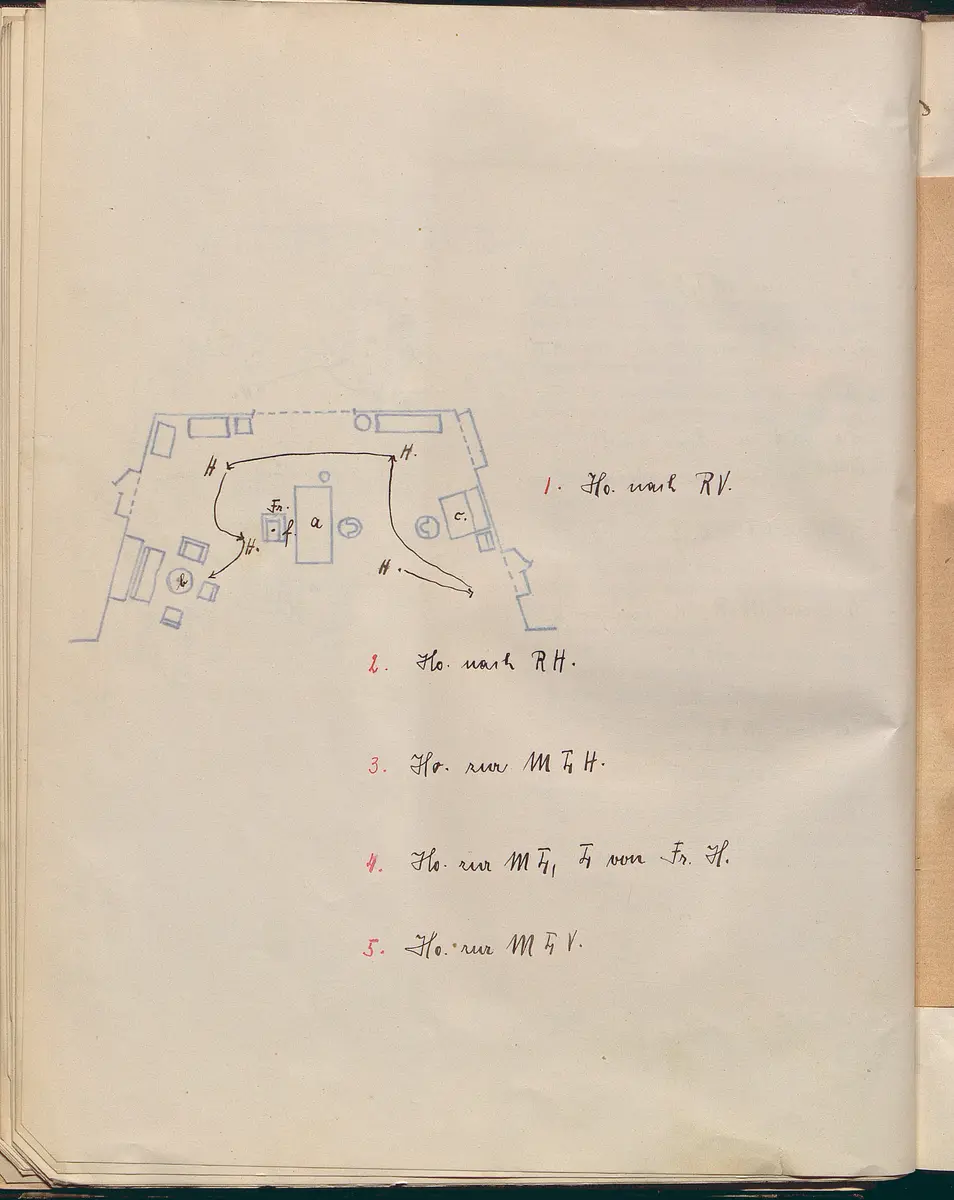 H
H.
Fr.
a
f.
c.
H.
b
H.
1. Ho. nach RV.
2. Ho. nach RH.
3. Ho. zur M L H.
4. Ho. zur M L, L von Fr. H.
5. Ho. zur M L V.